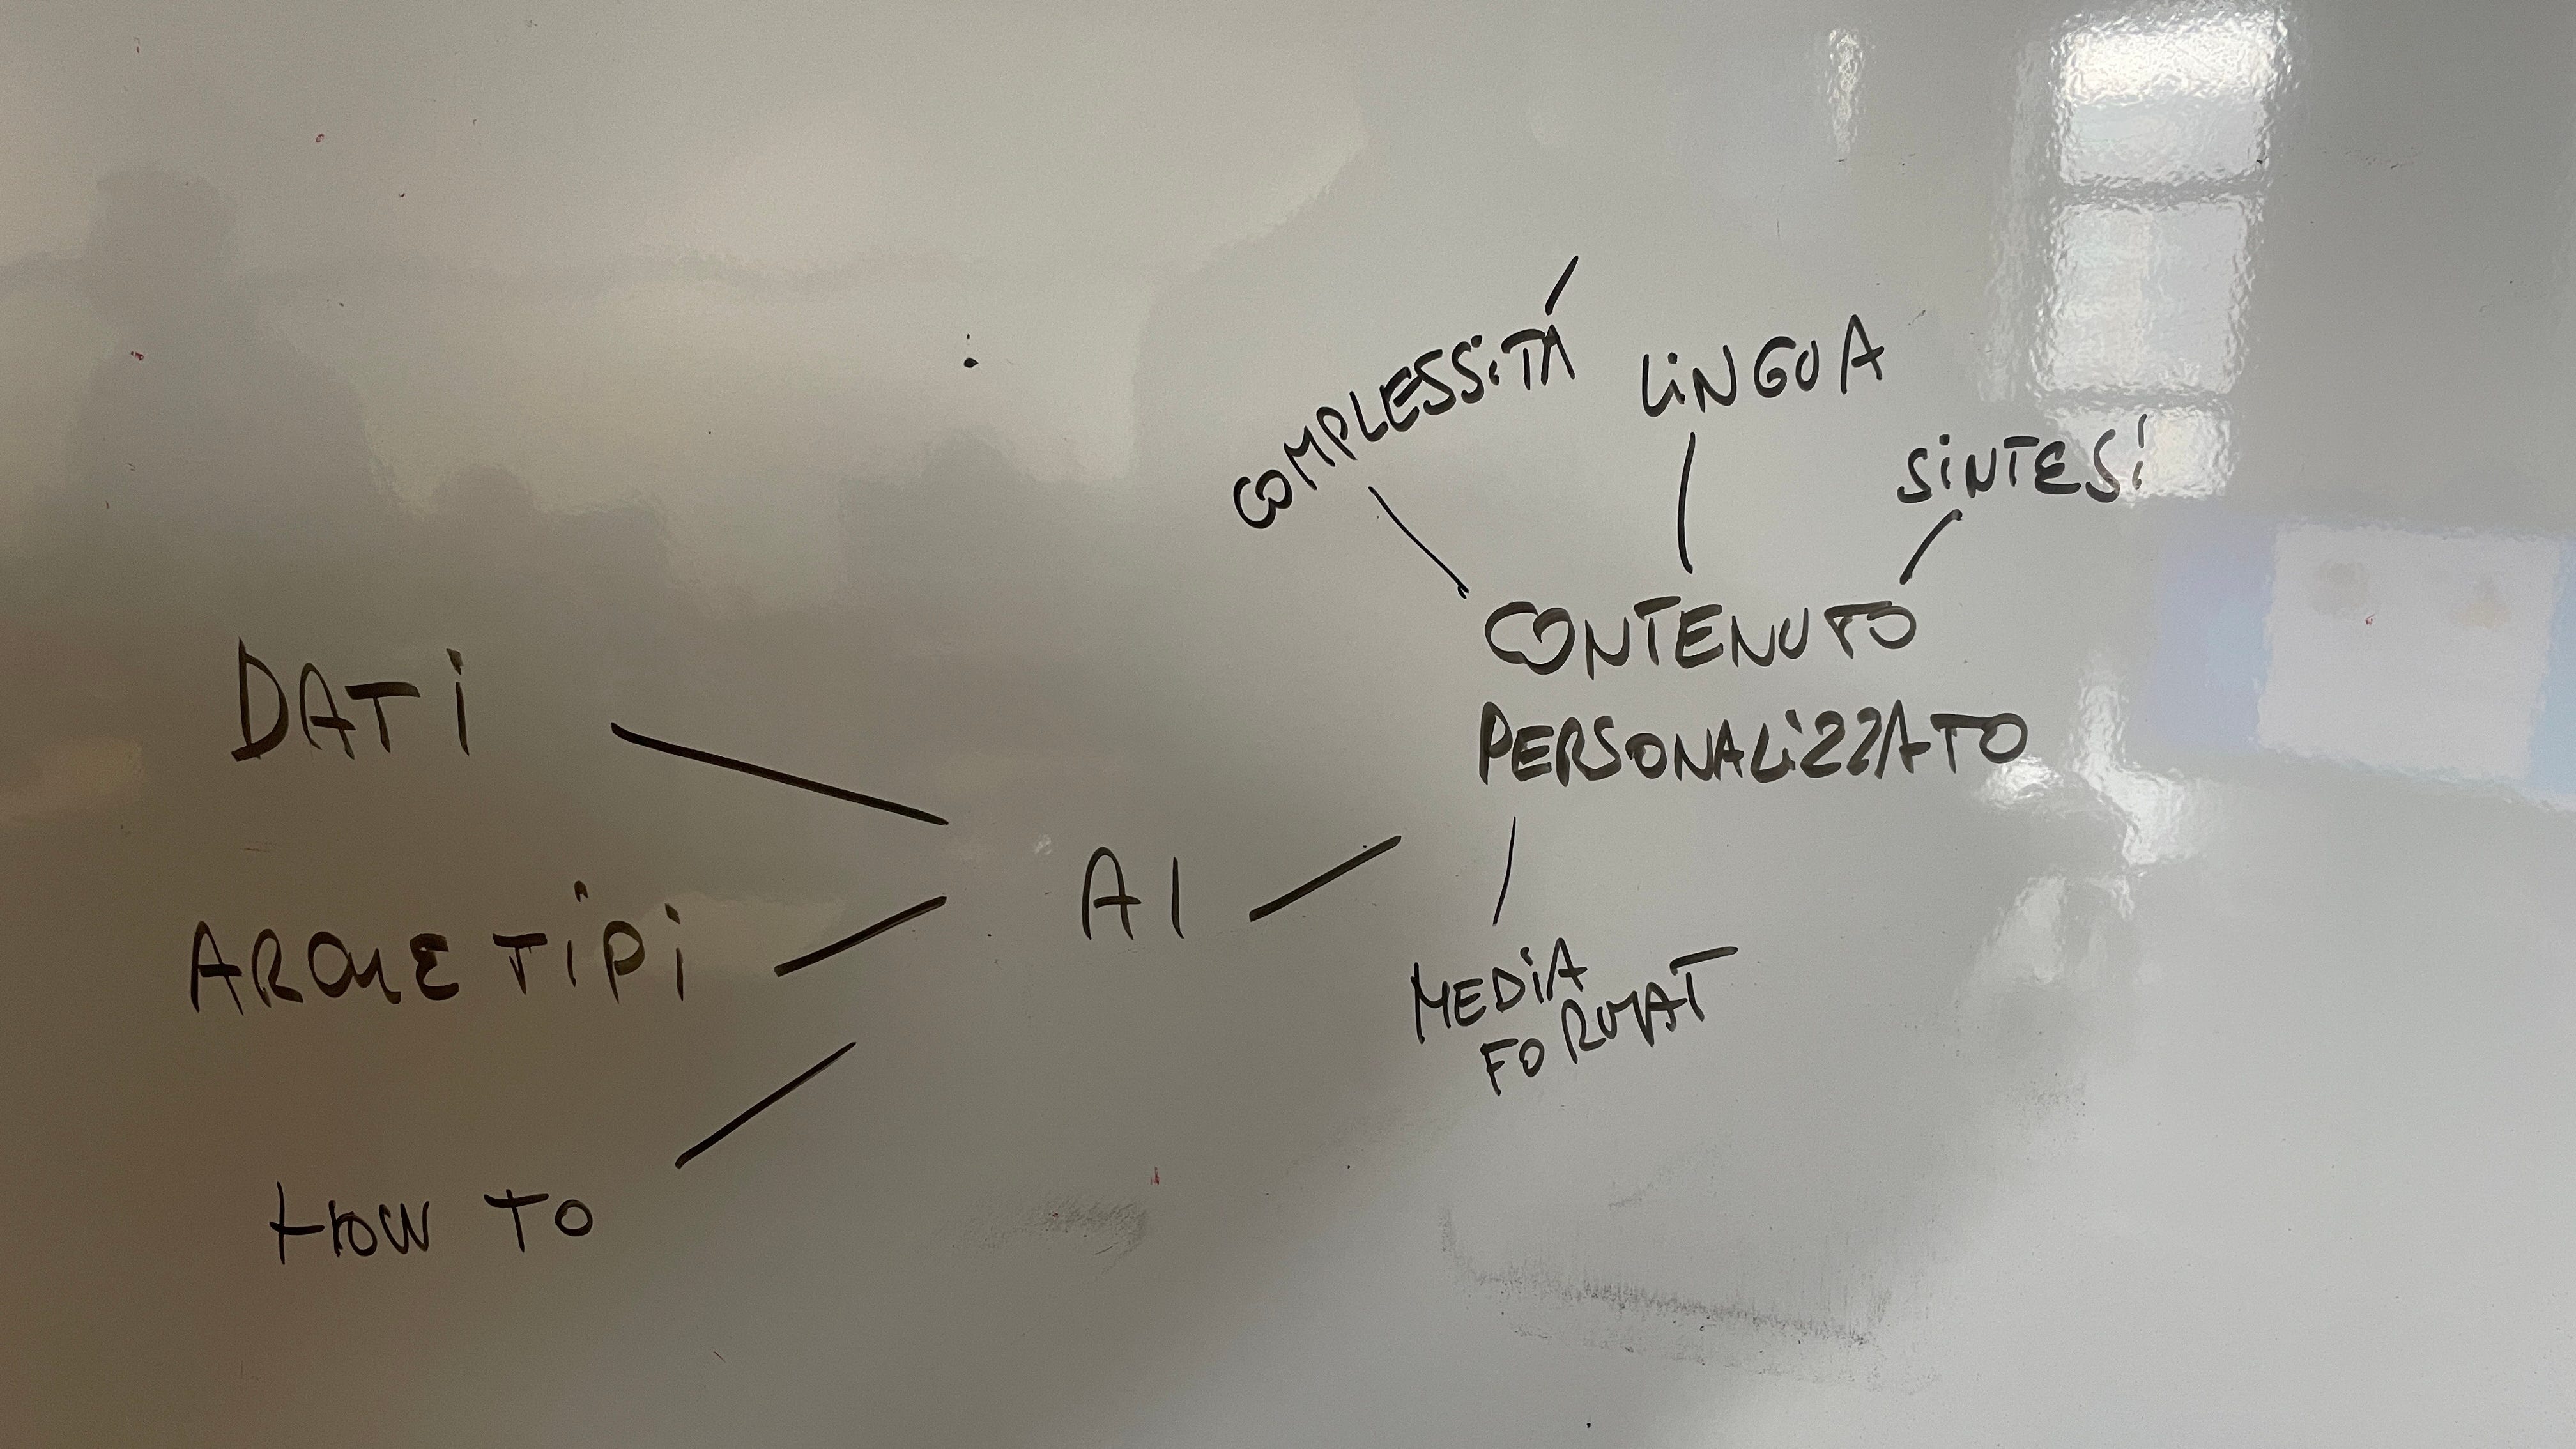 COMPLESSITÁ
LINGUA
SINTESI
CONTENUTO
PERSONALIZZATO
DATI
AI
ARCHETIPI
MEDIA
FORMAT
HOW TO